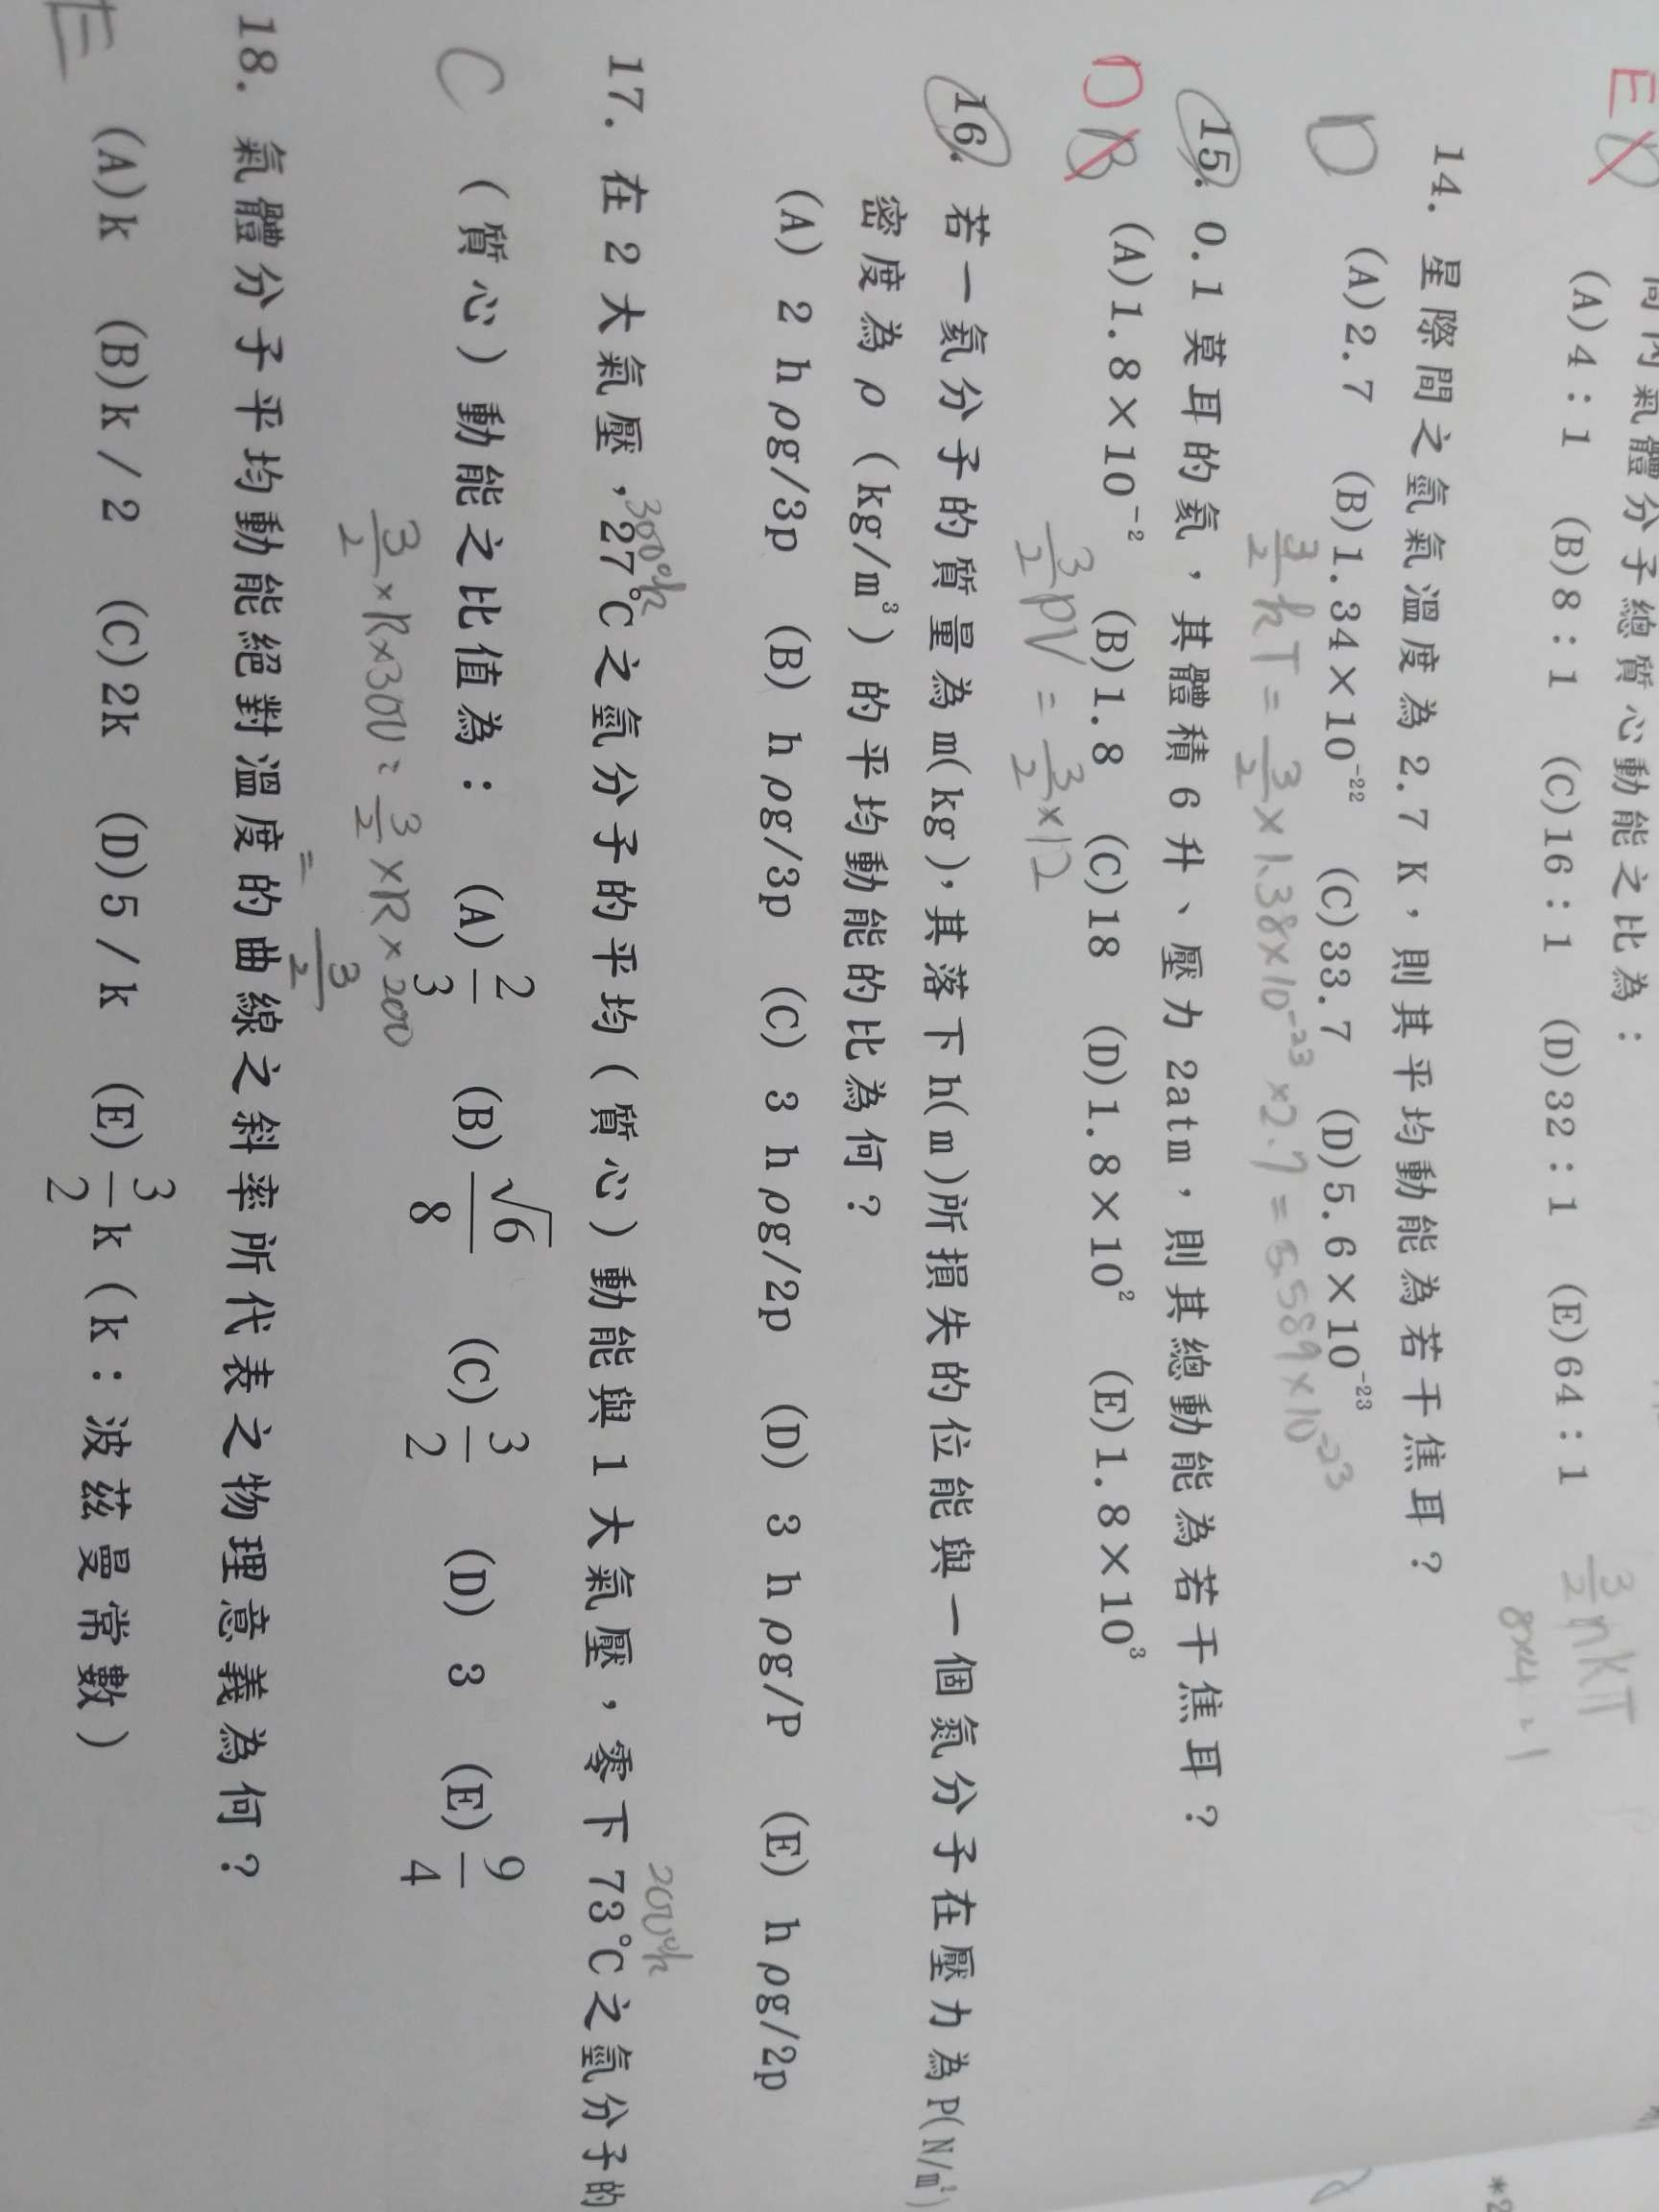 間內氣體分子總質心動能之比為：
E D (A)4：1 (B)8：1 (C)16：1 (D)32：1 (E)64：1
3/2 nkT
8×4：1
14. 星際間之氫氣溫度為2.7 K，則其平均動能為若干焦耳？
D (A)2.7 (B)1.34×10⁻²² (C)33.7 (D)5.6×10⁻²³
3/2 kT = 3/2 × 1.38×10⁻²³ ×2.7 = 5.589×10⁻²³
15. 0.1莫耳的氦，其體積6升、壓力2atm，則其總動能為若干焦耳？
D B (A)1.8×10⁻² (B)1.8 (C)18 (D)1.8×10² (E)1.8×10³
3/2 PV = 3/2 ×12
16. 若一氦分子的質量為m(kg)，其落下h(m)所損失的位能與一個氮分子在壓力為P(N/m²)
密度為ρ（kg/m³）的平均動能的比為何？
(A) 2 hρg/3p (B) hρg/3p (C) 3 hρg/2p (D) 3 hρg/P (E) hρg/2p
300°k 200°k
17. 在2大氣壓，27℃之氫分子的平均（質心）動能與1大氣壓，零下73℃之氫分子的
C （質心）動能之比值為： (A) 2/3 (B) √6/8 (C) 3/2 (D) 3 (E) 9/4
3/2 ×R×300：3/2 ×R×200
= 3/2
18. 氣體分子平均動能絕對溫度的曲線之斜率所代表之物理意義為何？
E (A)k (B)k/2 (C)2k (D)5/k (E) 3/2 k（k：波茲曼常數）